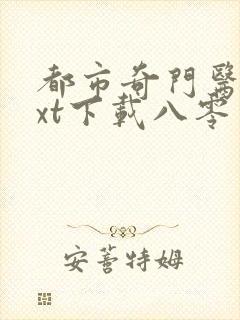 都市奇門醫
xt下載八零
安薯特姆